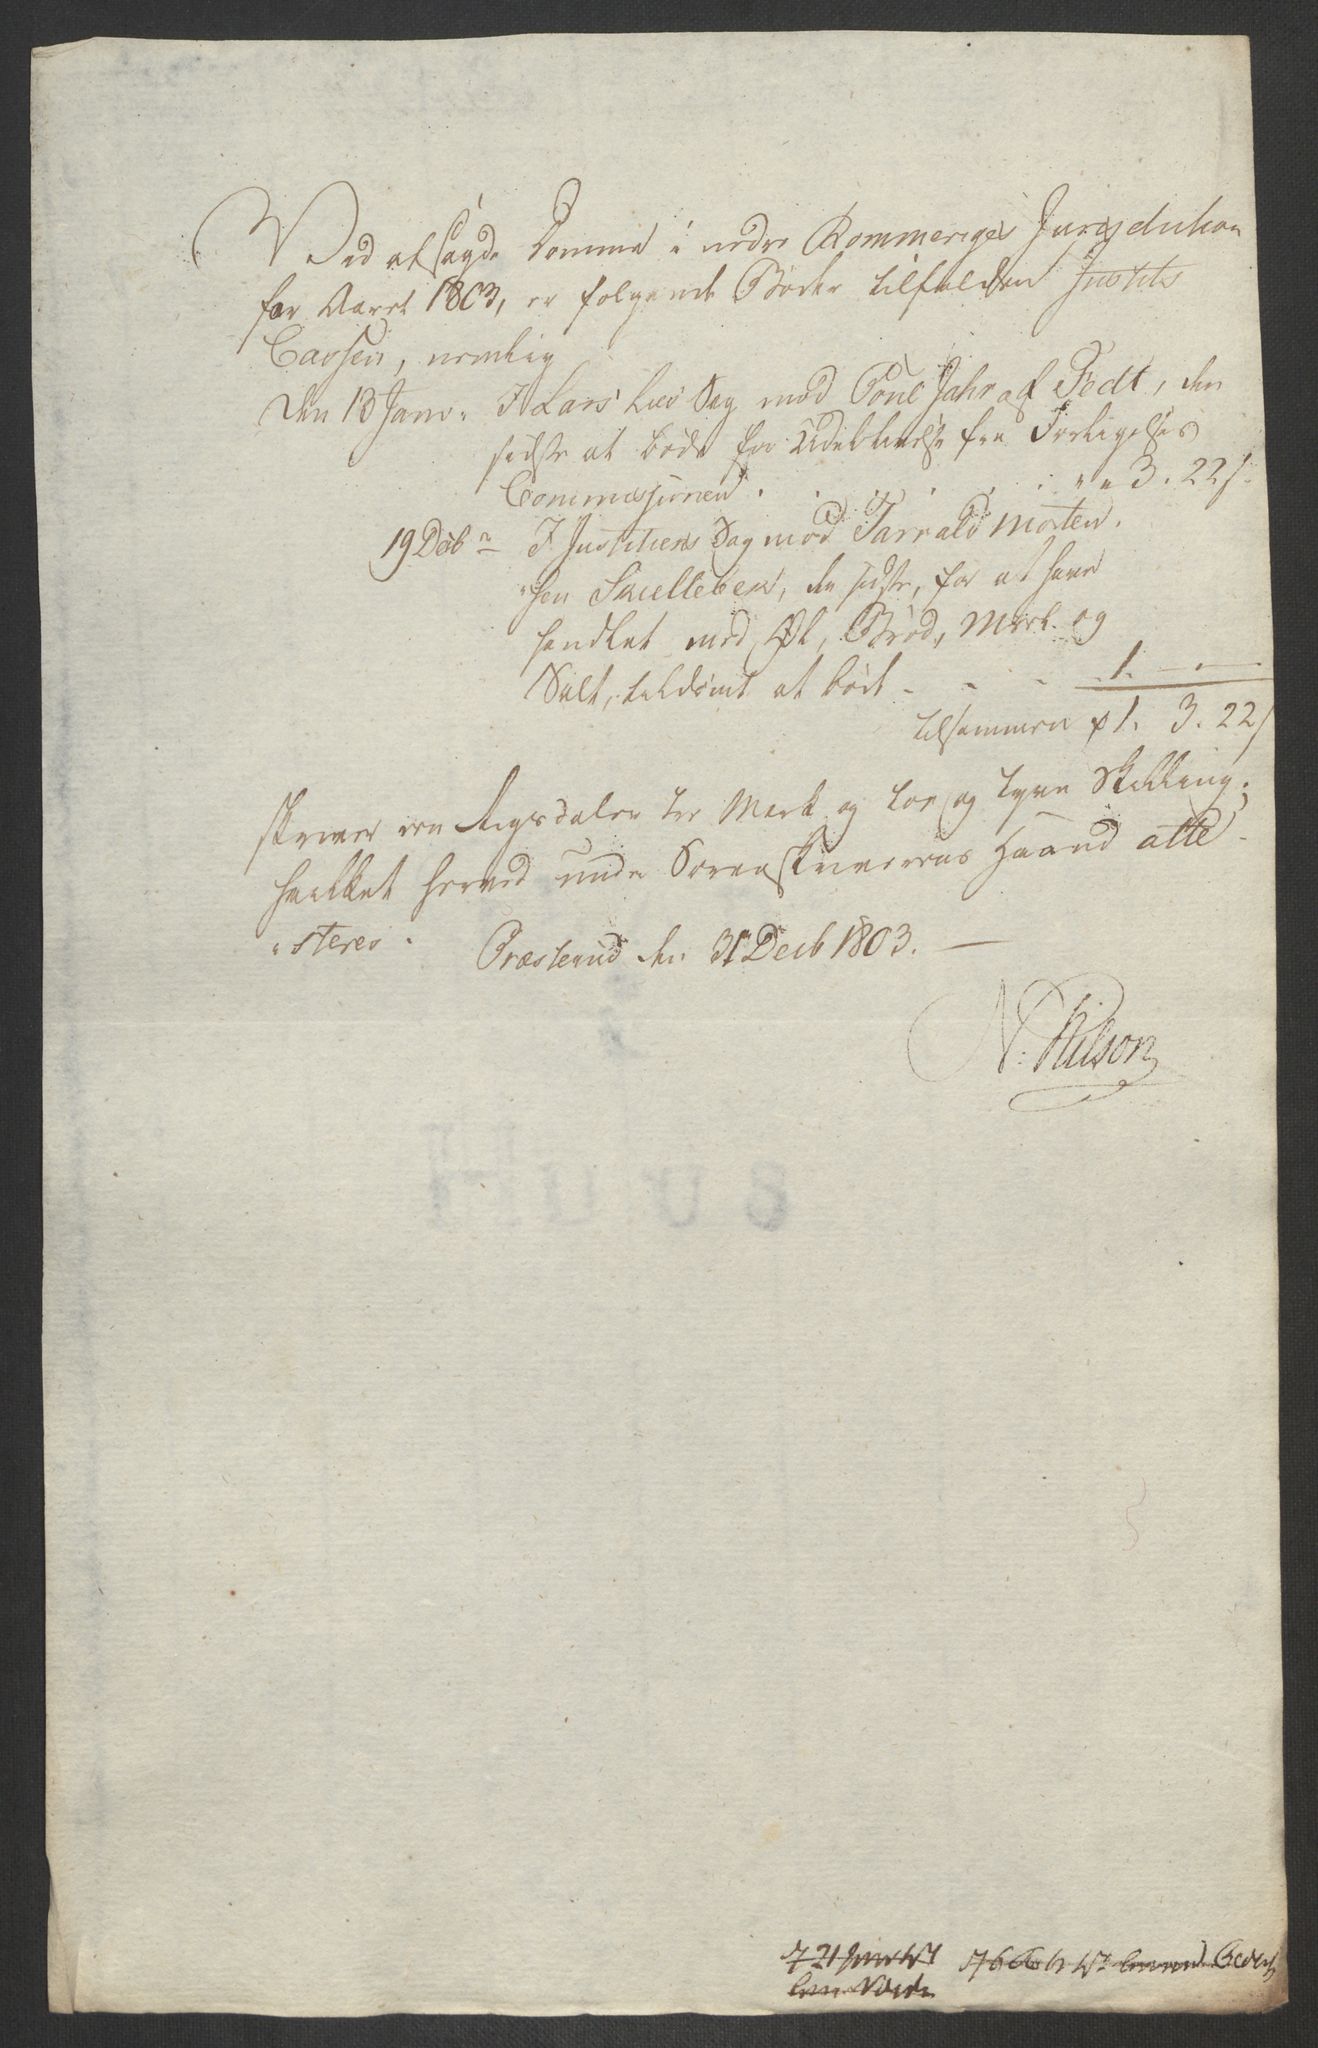 Ved afsagde Domme i nedre Rommeriges Jurisdiktion
for Aaret 1803, er følgende Bøder tilfalden Justits
Cassen, nemlig
Den 13 Janv. I Lars Lies Sag mod Poul Jahr af Fedt, den
sidste at bøde for Udeblivelse fra Forligelses
Commissionen . . . . . . " " 3. 22 s.
19 Decbr I Justitiens Sag mod Tarrald Morten-
"sen Skielleben, den sidste, for at have
handlet med Øl, Brød, Mæl og
Salt, tildømt at bøde - - - 1. — . —
tilsammen 1. 3. 22 s
skriver een Rigsdaler tre Mark og toe og tyve Skilling;
hvilket herved under Sorenskriverens Haand atte-
"steres. Præsterud den 31 Decb 1803. —
N: Nilson